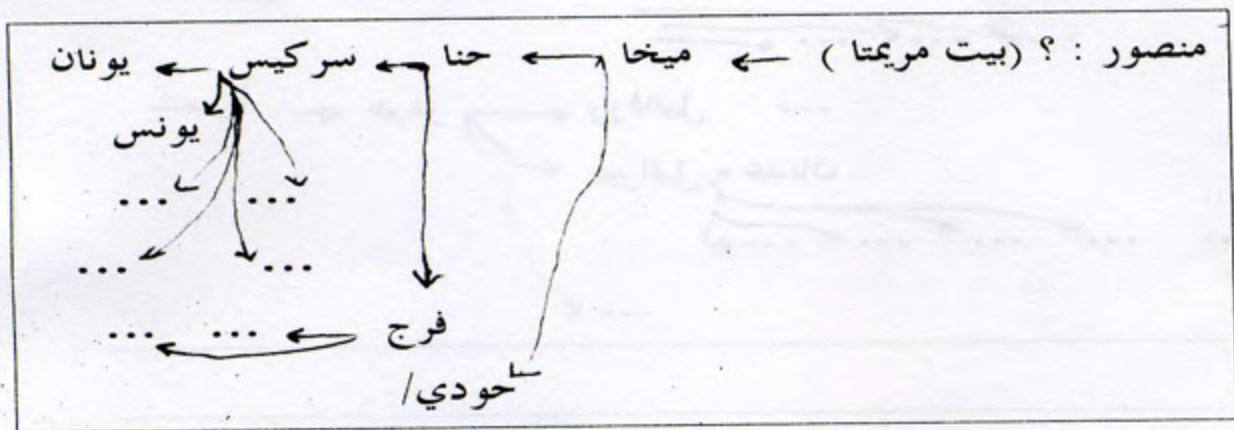 منصور : ؟ (بيت مريمتا) ← ميخا ← حنا ← سركيس ← يونان
يونس
... ...
... ...
فرج ← ... ...
حودي/